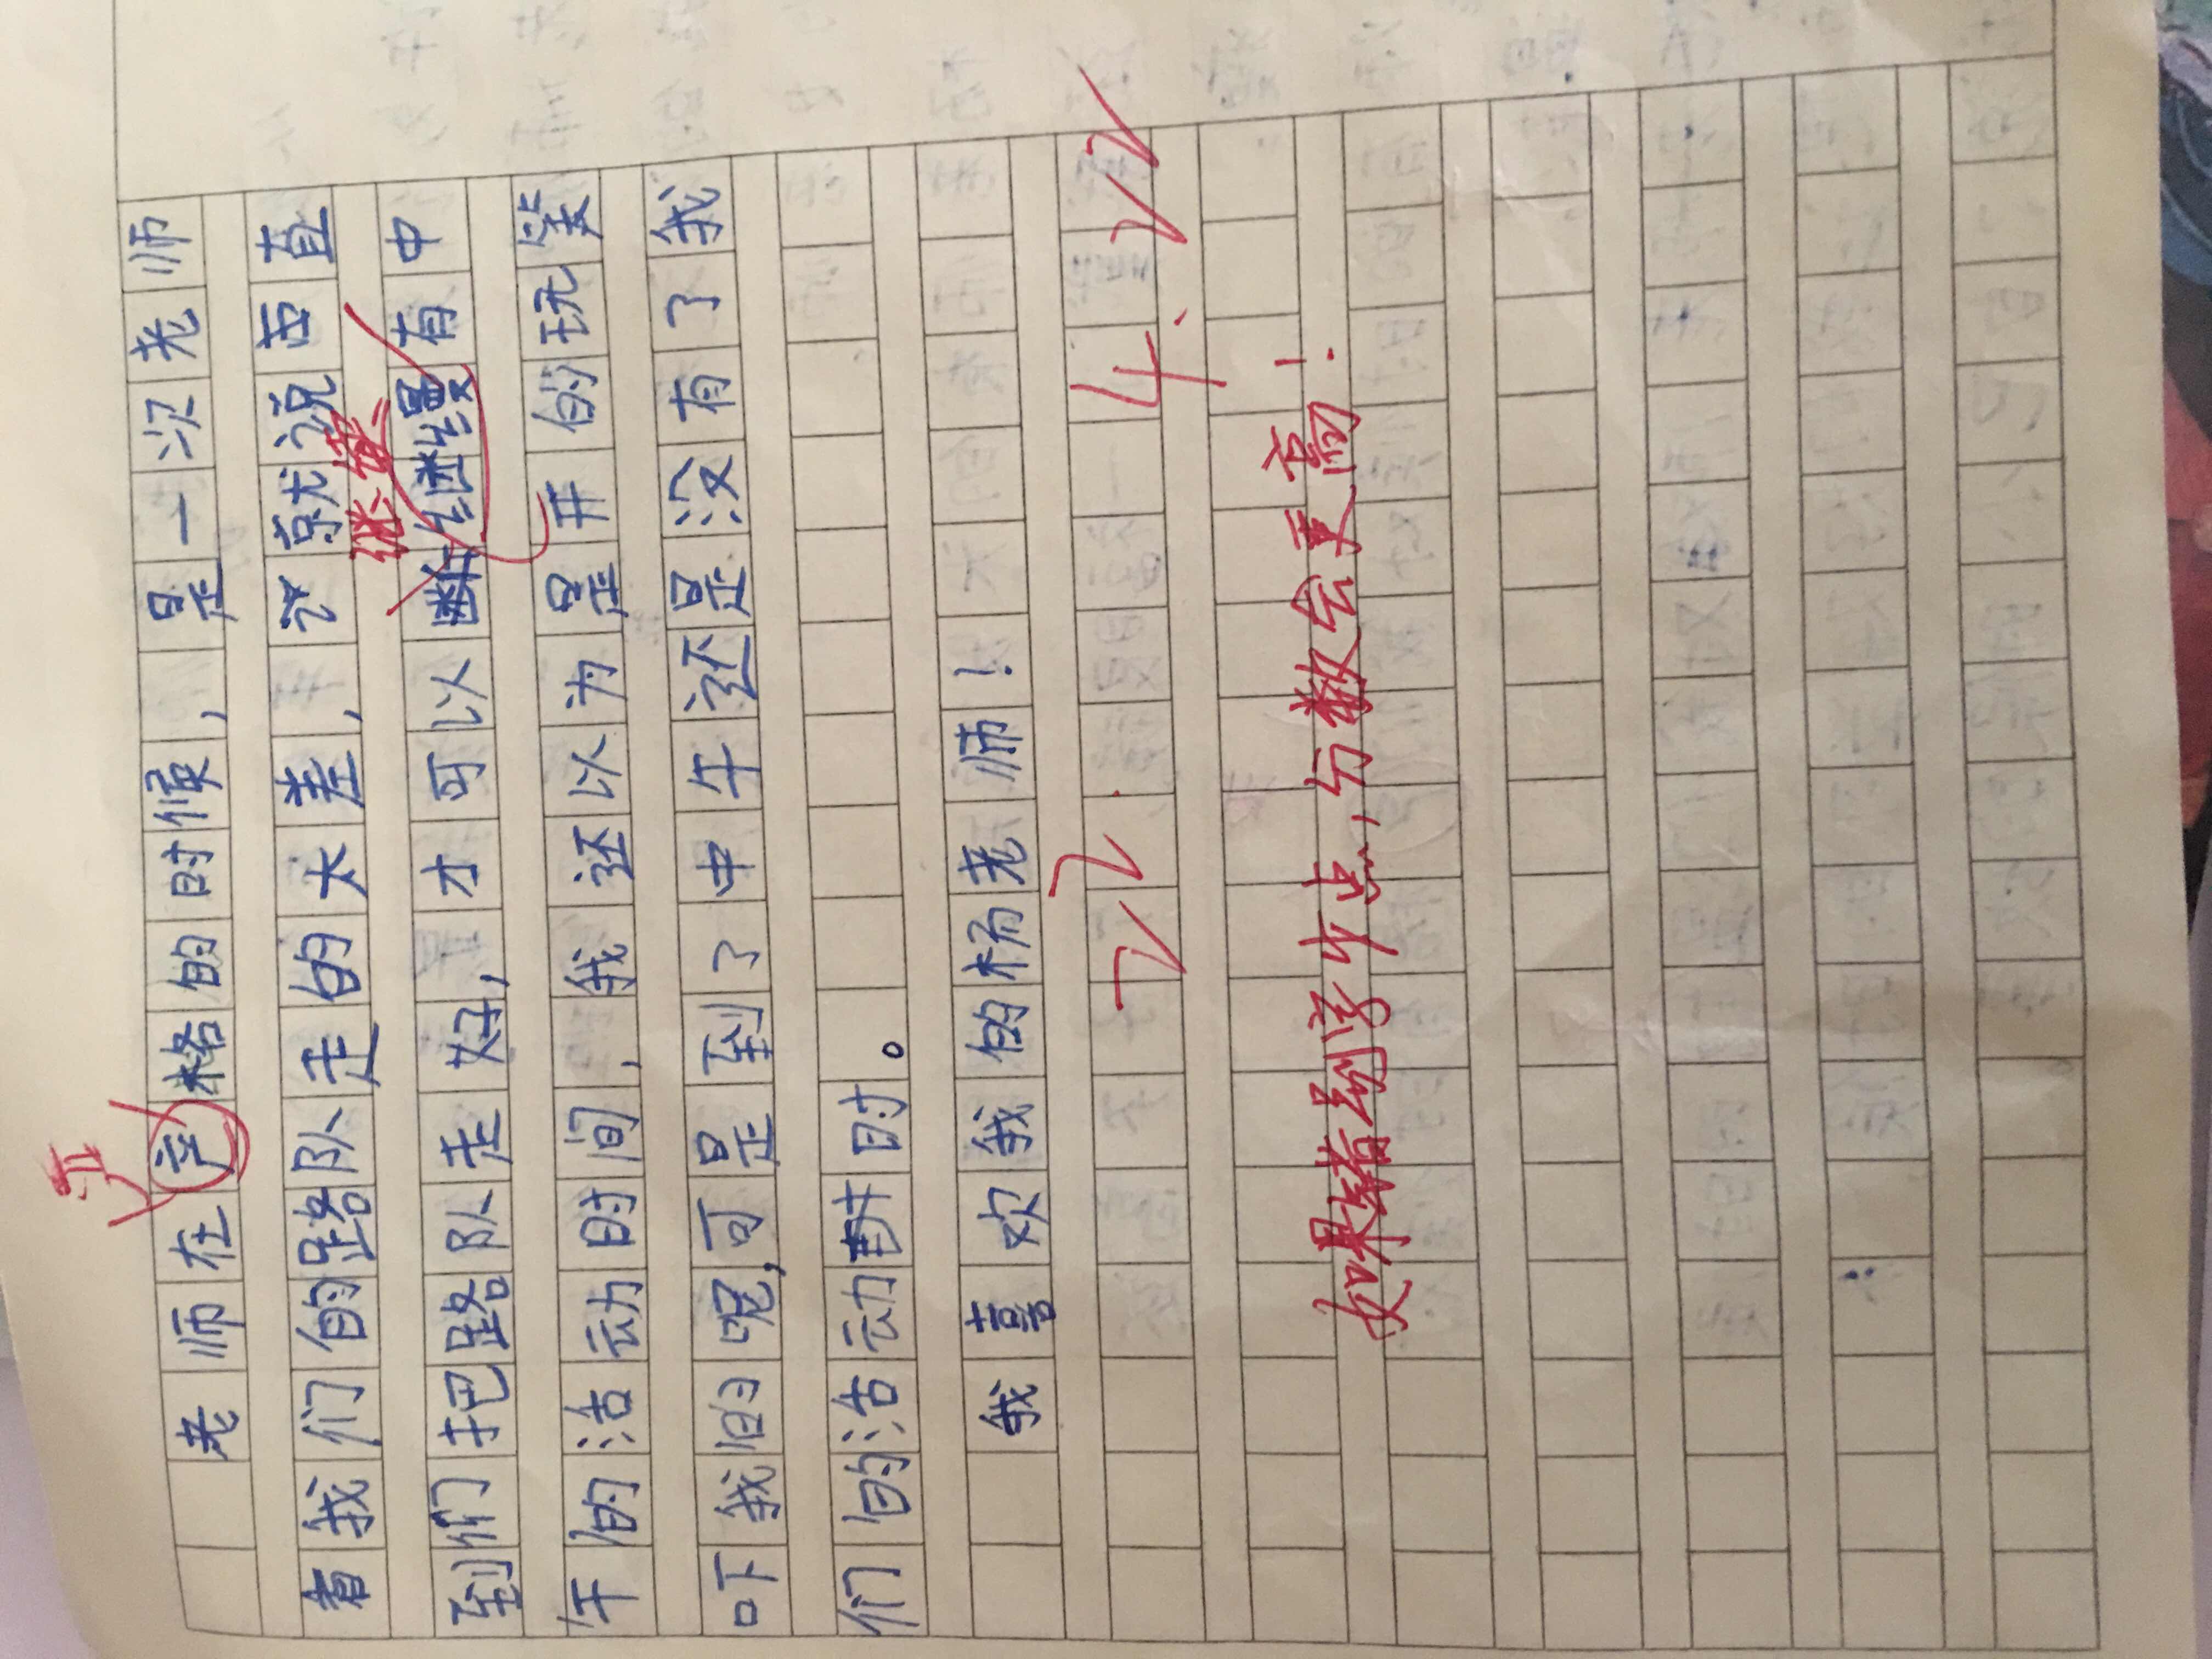 严
老师在产格的时候，是一次老师
看我们的路队走的太差，就说西直
继续
到们把路队走好，才可以断继续有中
午的活动时间，我还以为是开的玩笑
吓我的呢，可是到了中午还是没有了我
们的活动时。
我喜欢我的杨老师！
22. 4.22
如果细写点，分数会更高！